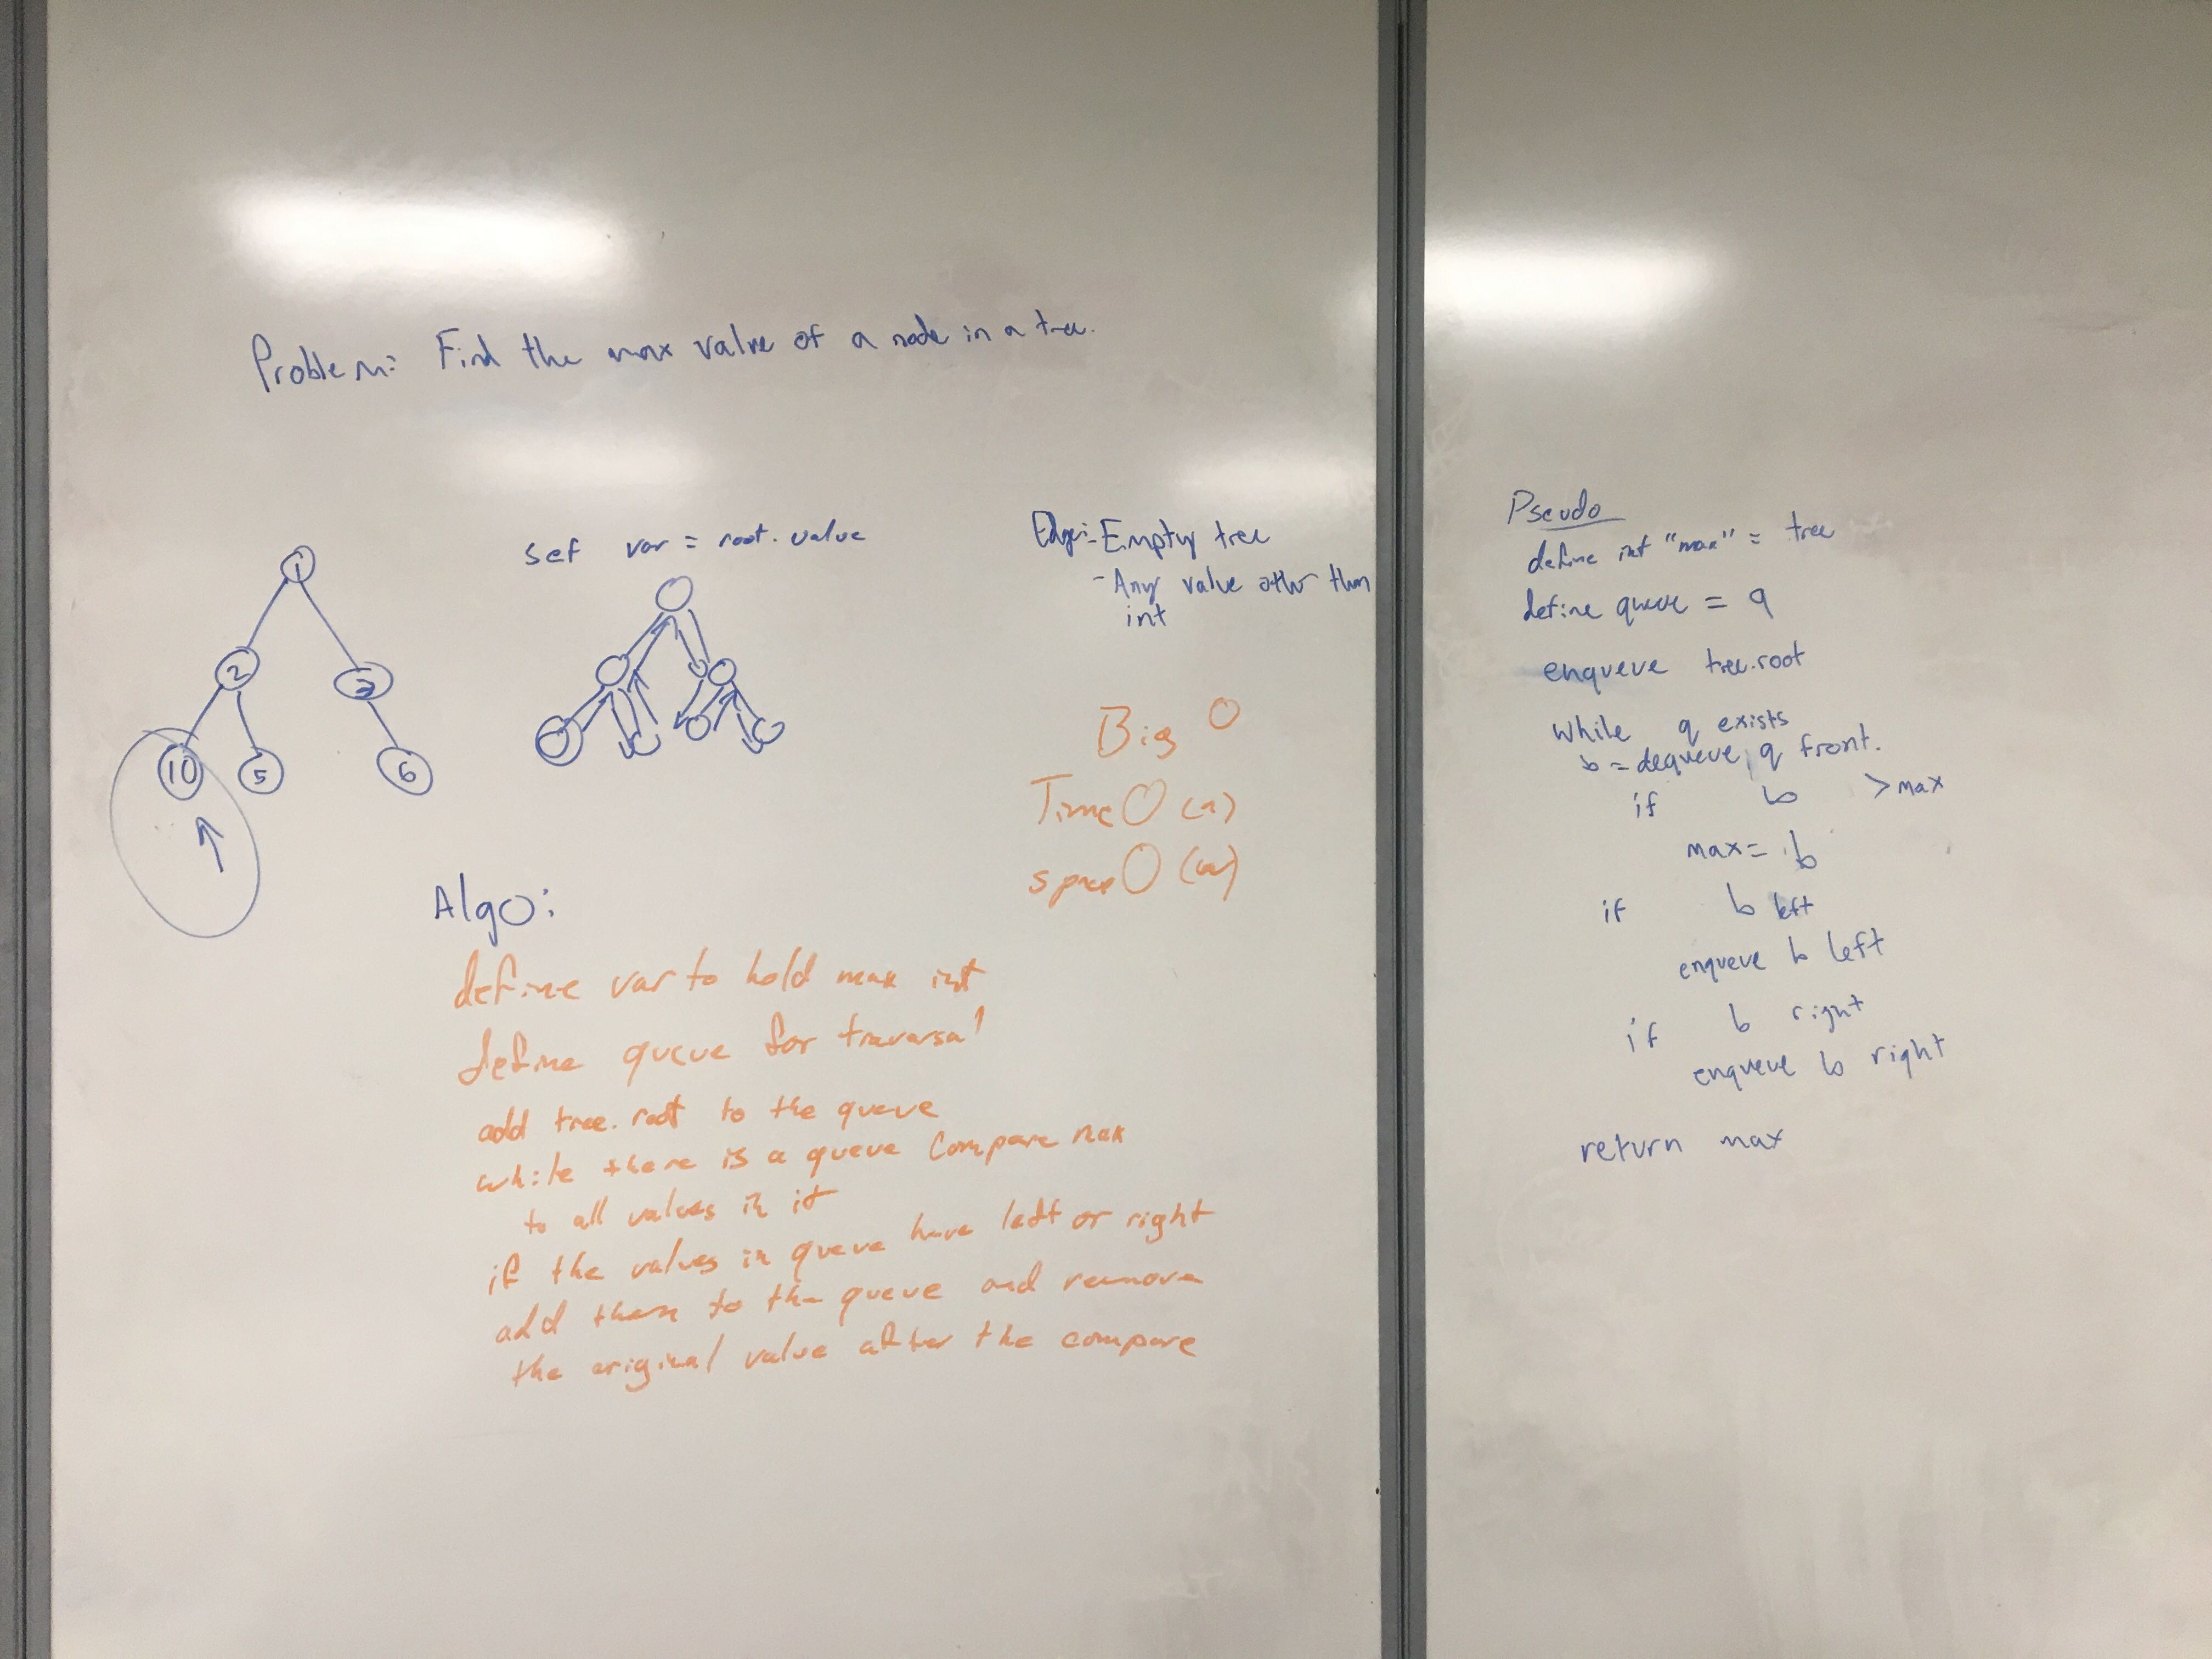 Problem: Find the max value of a node in a tree.
1
2
3
10
5
6
set var = root.value
Edge: - Empty tree
- Any value other than
int
Big O
Time O (n)
space O (w)
Algo:
define var to hold max int
define queue for traversal
add tree.root to the queue
while there is a queue Compare max
to all values in it
if the values in queue have left or right
add them to the queue and remove
the original value after the compare
Pseudo
define int "max" = tree
define queue = q
enqueue tree.root
while q exists
b = dequeue q front.
if b > max
max = b
if b left
enqueue b left
if b right
enqueue b right
return max